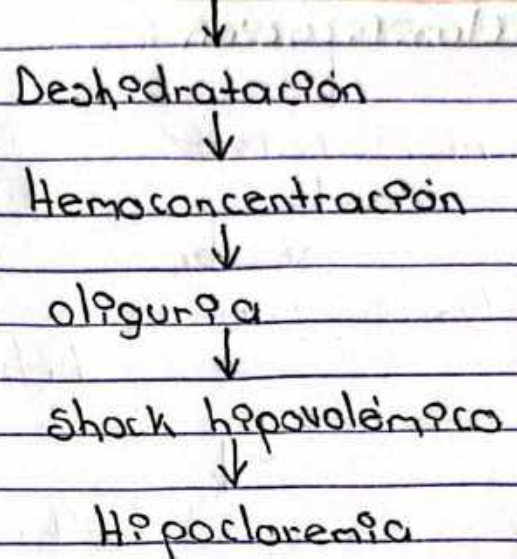 ↓
Deshidratación
↓
Hemoconcentración
↓
oliguria
↓
shock hipovolémico
↓
Hipocloremia